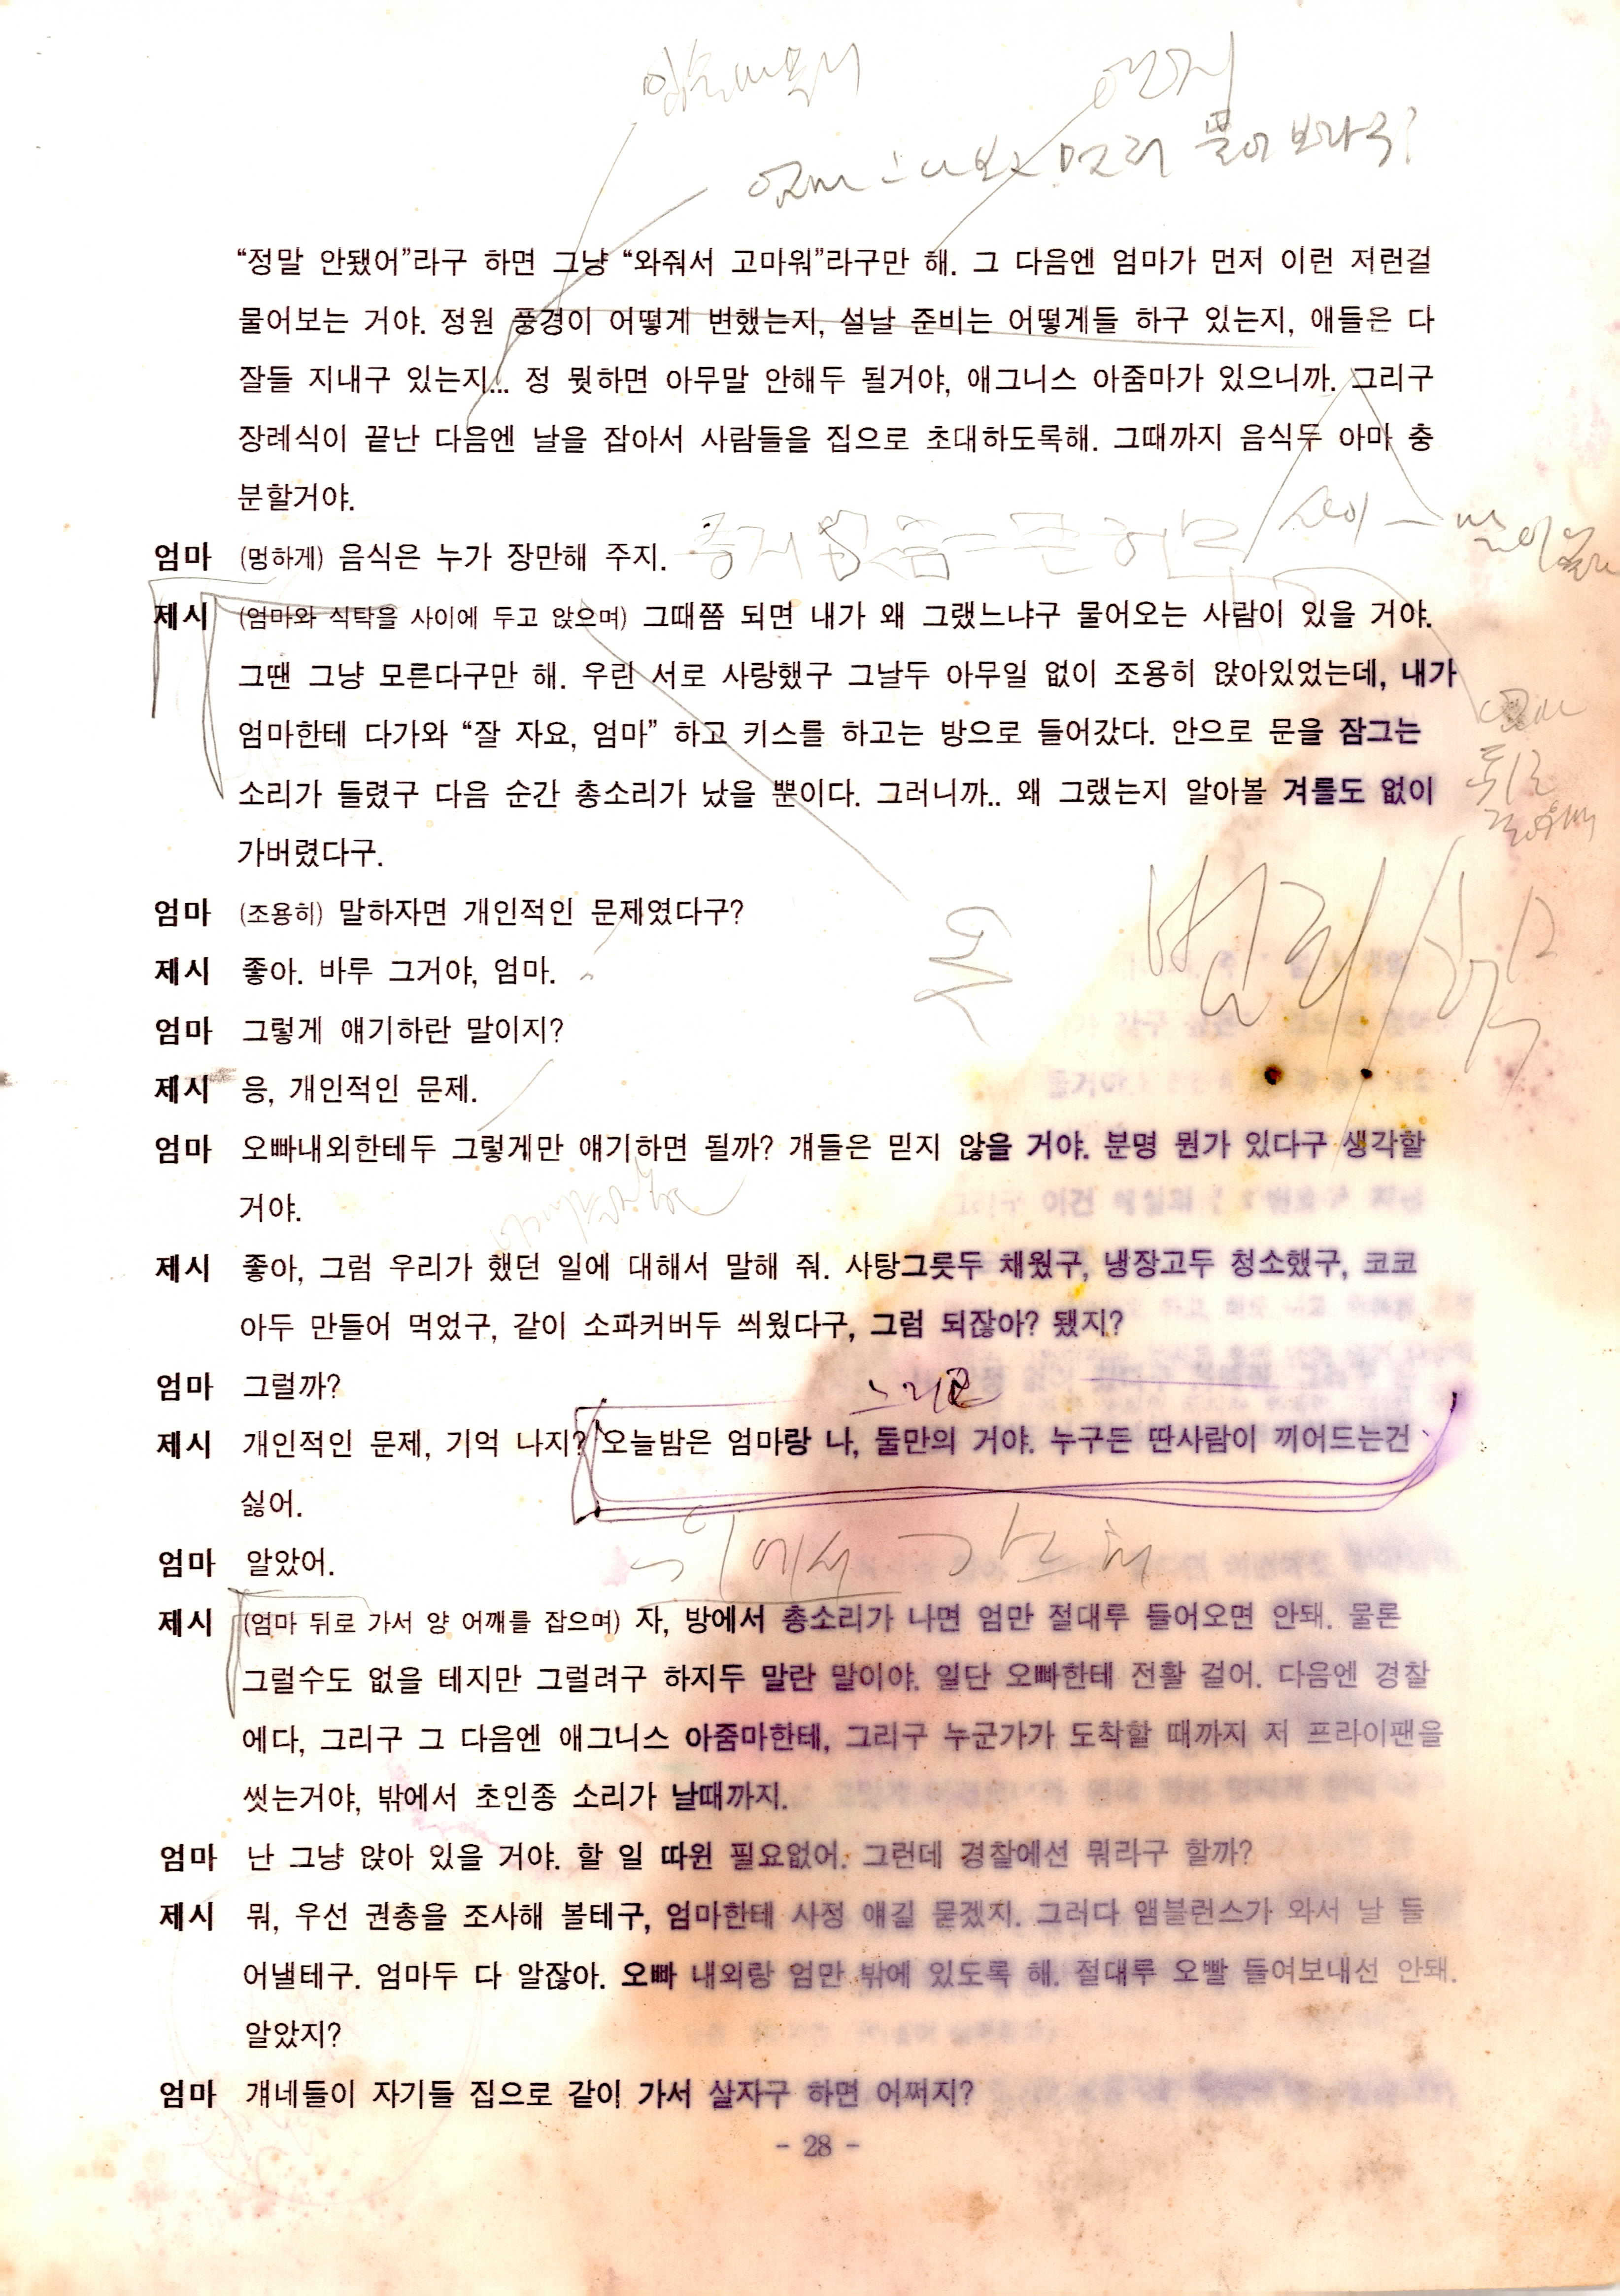 “정말 안됐어”라구 하면 그냥 “와줘서 고마워”라구만 해. 그 다음엔 엄마가 먼저 이런 저런걸
물어보는 거야. 정원 풍경이 어떻게 변했는지, 설날 준비는 어떻게들 하구 있는지, 애들은 다
잘들 지내구 있는지... 정 뭣하면 아무말 안해두 될거야, 애그니스 아줌마가 있으니까. 그리구
장례식이 끝난 다음엔 날을 잡아서 사람들을 집으로 초대하도록해. 그때까지 음식두 아마 충
분할거야.
엄마 (멍하게) 음식은 누가 장만해 주지.
제시 (엄마와 식탁을 사이에 두고 앉으며) 그때쯤 되면 내가 왜 그랬느냐구 물어오는 사람이 있을 거야.
그땐 그냥 모른다구만 해. 우린 서로 사랑했구 그날두 아무일 없이 조용히 앉아있었는데, 내가
엄마한테 다가와 “잘 자요, 엄마” 하고 키스를 하고는 방으로 들어갔다. 안으로 문을 잠그는
소리가 들렸구 다음 순간 총소리가 났을 뿐이다. 그러니까.. 왜 그랬는지 알아볼 겨를도 없이
가버렸다구.
엄마 (조용히) 말하자면 개인적인 문제였다구?
제시 좋아. 바루 그거야, 엄마.
엄마 그렇게 얘기하란 말이지?
제시 응, 개인적인 문제.
엄마 오빠내외한테두 그렇게만 얘기하면 될까? 걔들은 믿지 않을 거야. 분명 뭔가 있다구 생각할
거야.
제시 좋아, 그럼 우리가 했던 일에 대해서 말해 줘. 사탕그릇두 채웠구, 냉장고두 청소했구, 코코
아두 만들어 먹었구, 같이 소파커버두 씌웠다구, 그럼 되잖아? 됐지?
엄마 그럴까?
제시 개인적인 문제, 기억 나지? 오늘밤은 엄마랑 나, 둘만의 거야. 누구든 딴사람이 끼어드는건
싫어.
엄마 알았어.
뒤에서
제시 (엄마 뒤로 가서 양 어깨를 잡으며) 자, 방에서 총소리가 나면 엄만 절대루 들어오면 안돼. 물론
그럴수도 없을 테지만 그럴려구 하지두 말란 말이야. 일단 오빠한테 전활 걸어. 다음엔 경찰
에다, 그리구 그 다음엔 애그니스 아줌마한테, 그리구 누군가가 도착할 때까지 저 프라이팬을
씻는거야, 밖에서 초인종 소리가 날때까지.
엄마 난 그냥 앉아 있을 거야. 할 일 따윈 필요없어. 그런데 경찰에선 뭐라구 할까?
제시 뭐, 우선 권총을 조사해 볼테구, 엄마한테 사정 얘길 묻겠지. 그러다 앰블런스가 와서 날 들
어낼테구. 엄마두 다 알잖아. 오빠 내외랑 엄만 밖에 있도록 해. 절대루 오빨 들여보내선 안돼.
알았지?
엄마 걔네들이 자기들 집으로 같이 가서 살자구 하면 어쩌지?
- 28 -